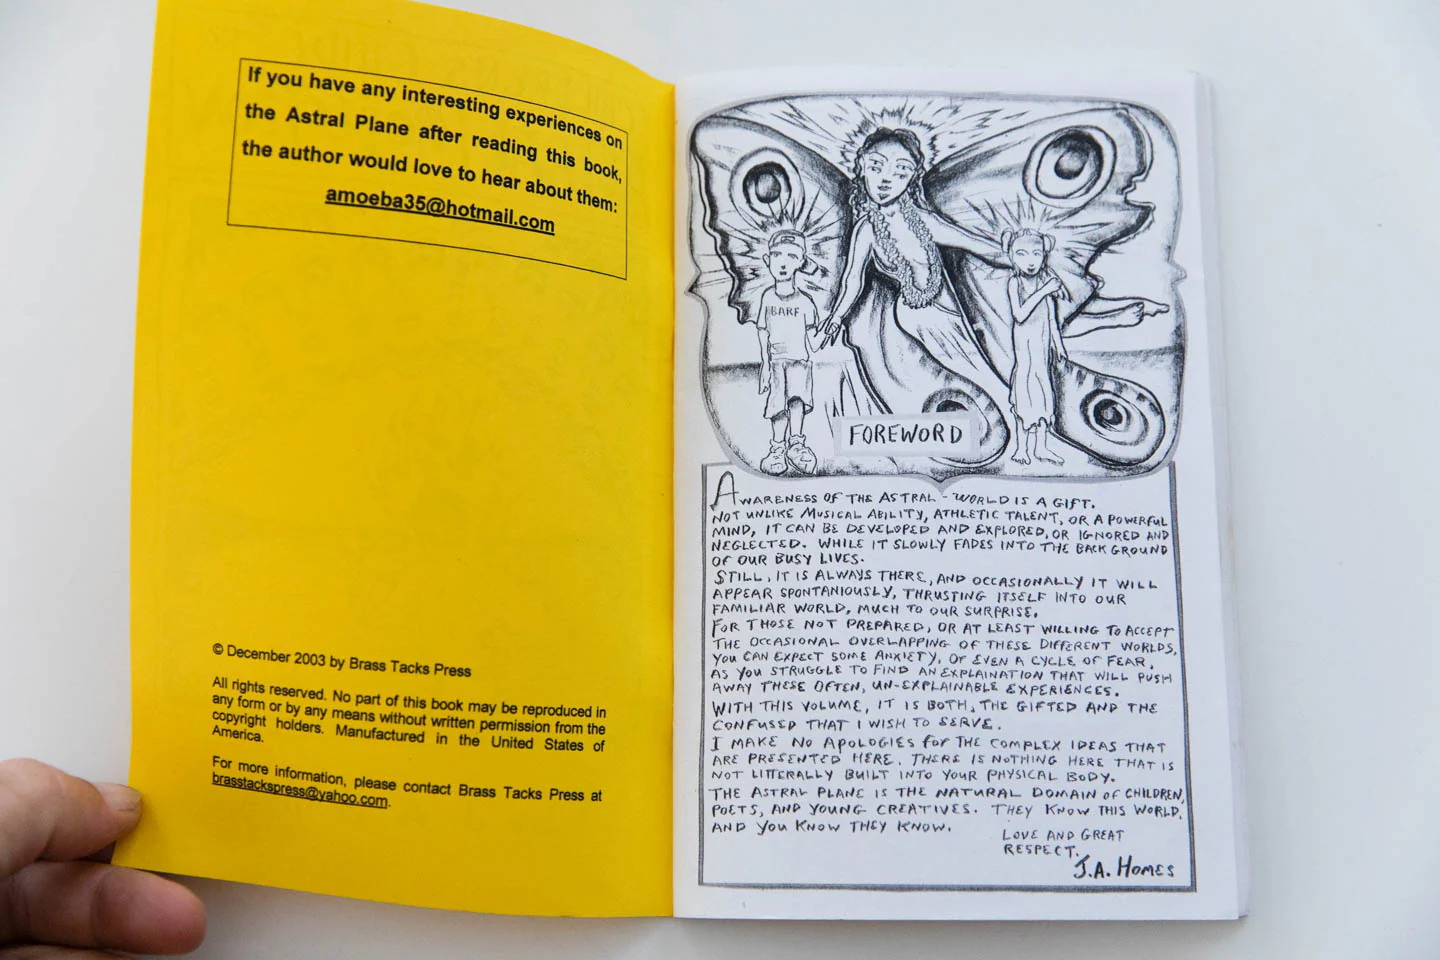 If you have any interesting experiences on
the Astral Plane after reading this book,
the author would love to hear about them:
amoeba35@hotmail.com
© December 2003 by Brass Tacks Press
All rights reserved. No part of this book may be reproduced in
any form or by any means without written permission from the
copyright holders. Manufactured in the United States of
America.
For more information, please contact Brass Tacks Press at
brasstackspress@yahoo.com.
BARF
FOREWORD
AWARENESS OF THE ASTRAL-WORLD IS A GIFT.
NOT UNLIKE MUSICAL ABILITY, ATHLETIC TALENT, OR A POWERFUL
MIND, IT CAN BE DEVELOPED AND EXPLORED, OR IGNORED AND
NEGLECTED. WHILE IT SLOWLY FADES INTO THE BACK GROUND
OF OUR BUSY LIVES.
STILL, IT IS ALWAYS THERE, AND OCCASIONALLY IT WILL
APPEAR SPONTANIOUSLY, THRUSTING ITSELF INTO OUR
FAMILIAR WORLD, MUCH TO OUR SURPRISE.
FOR THOSE NOT PREPARED, OR AT LEAST WILLING TO ACCEPT
THE OCCASIONAL OVERLAPPING OF THESE DIFFERENT WORLDS,
YOU CAN EXPECT SOME ANXIETY, OR EVEN A CYCLE OF FEAR,
AS YOU STRUGGLE TO FIND AN EXPLAINATION THAT WILL PUSH
AWAY THESE OFTEN, UN-EXPLAINABLE EXPERIENCES.
WITH THIS VOLUME, IT IS BOTH, THE GIFTED AND THE
CONFUSED THAT I WISH TO SERVE.
I MAKE NO APOLOGIES FOR THE COMPLEX IDEAS THAT
ARE PRESENTED HERE. THERE IS NOTHING HERE THAT IS
NOT LITTERALLY BUILT INTO YOUR PHYSICAL BODY.
THE ASTRAL PLANE IS THE NATURAL DOMAIN OF CHILDREN,
POETS, AND YOUNG CREATIVES. THEY KNOW THIS WORLD,
AND YOU KNOW THEY KNOW.
LOVE AND GREAT
RESPECT.
J.A. HOMES